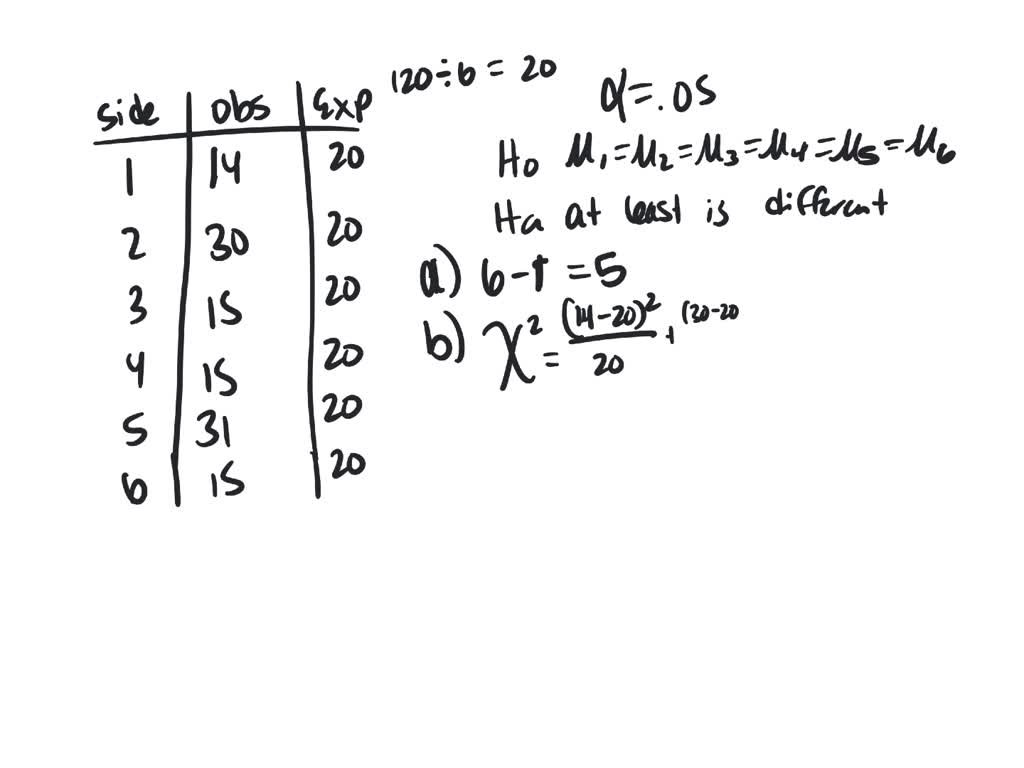 120÷6 = 20
side obs Exp
1 14 20
2 30 20
3 15 20
4 15 20
5 31 20
6 15 20
α=.05
Ho μ1=μ2=μ3=μ4=μ5=μ6
Ha at least is different
a) 6-1=5
b) χ² = (14-20)²/20 + (20-20